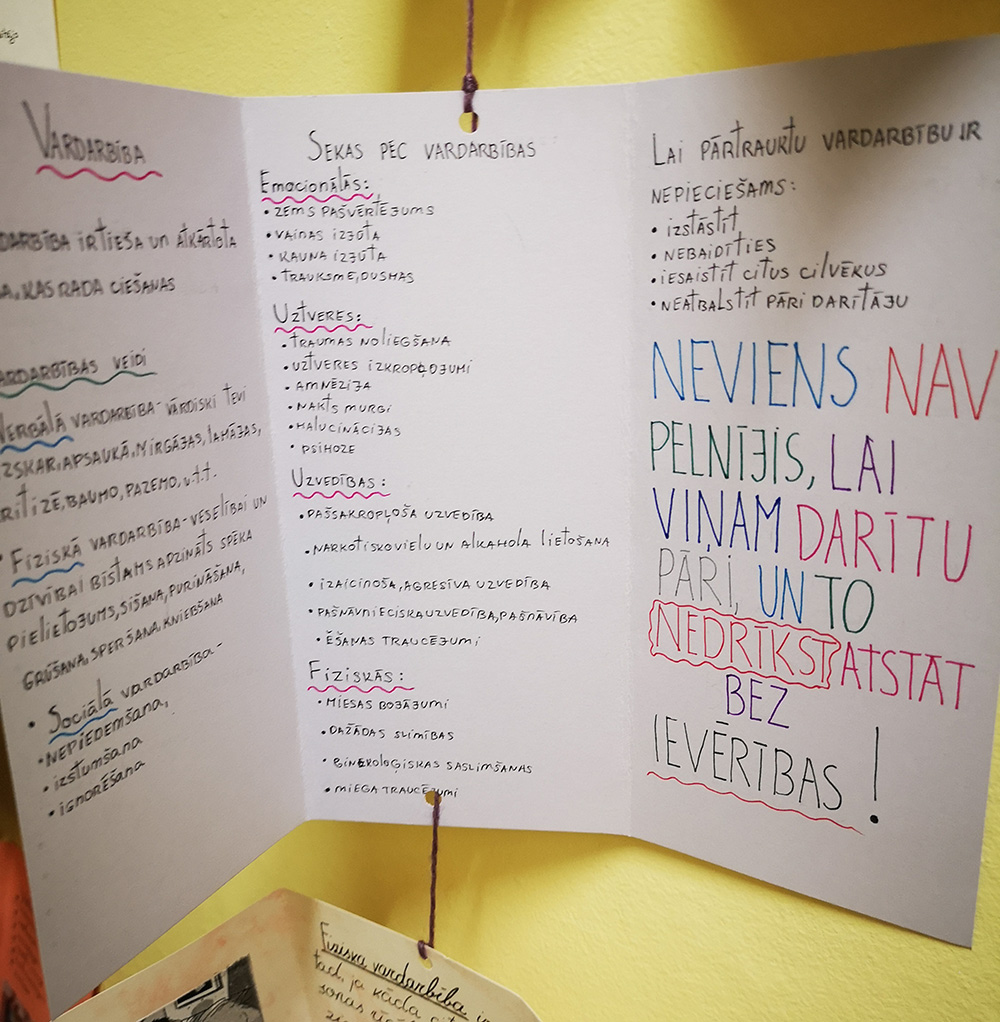 VARDARBĪBA
DARBĪBA IR TIEŠA UN ATKĀRTOTA
A, KAS RADA CIEŠANAS
ARDARBĪBAS VEIDI
VERBĀLĀ VARDARBĪBA - VĀRDISKI TEVI
IZSKAR, APSAUKĀ, ŅIRGĀJAS, LAMĀJAS,
RITIZĒ, BAUMO, PAZEMO, u.t.t.
• FIZISKĀ VARDARBĪBA - VESELĪBAI UN
DZĪVĪBAI BĪSTAMS APZINĀTS SPĒKA
PIELIETOJUMS, SIŠANA, PURINĀŠANA,
GRŪŠANA, SPERŠANA, KNIEBŠANA
• SOCIĀLĀ VARDARBĪBA -
• NEPIEDEMŠANA,
• IZSTUMŠANA
• IGNORĒŠANA
SEKAS PĒC VARDARBĪBAS
EMOCIONĀLĀS:
• ZEMS PAŠVĒRTĒJUMS
• VAINAS IZJŪTA
• KAUNA IZJŪTA
• TRAUKSME, DUSMAS
UZTVERES:
• TRAUMAS NOLIEGŠANA
• UZTVERES IZKROPĻOJUMI
• AMNĒZIJA
• NAKTS MURGI
• HALUCINĀCIJAS
• PSIHOZE
UZVEDĪBAS:
• PAŠSAKROPĻOŠA UZVEDĪBA
• NARKOTISKO VIELU UN ALKAHOLA LIETOŠANA
• IZAICINOŠA, AGRESĪVA UZVEDĪBA
• PAŠNĀVNIECISKA UZVEDĪBA, PAŠNĀVĪBA
• ĒŠANAS TRAUCĒJUMI
FIZISKĀS:
• MIESAS BOJĀJUMI
• DAŽĀDAS SLIMĪBAS
• ĢINEKOLOĢISKAS SASLIMŠANAS
• MIEGA TRAUCĒJUMI
LAI PĀRTRAUKTU VARDARBĪBU IR
NEPIECIEŠAMS:
• IZSTĀSTĪT
• NEBAIDĪTIES
• IESAISTĪT CITUS CILVĒKUS
• NEATBALSTĪT PĀRI DARĪTĀJU
NEVIENS NAV
PELNĪJIS, LAI
VIŅAM DARĪTU
PĀRI, UN TO
NEDRĪKST ATSTĀT
BEZ
IEVĒRĪBAS!
Fiziska vardarbība ir
tad, ja kāda